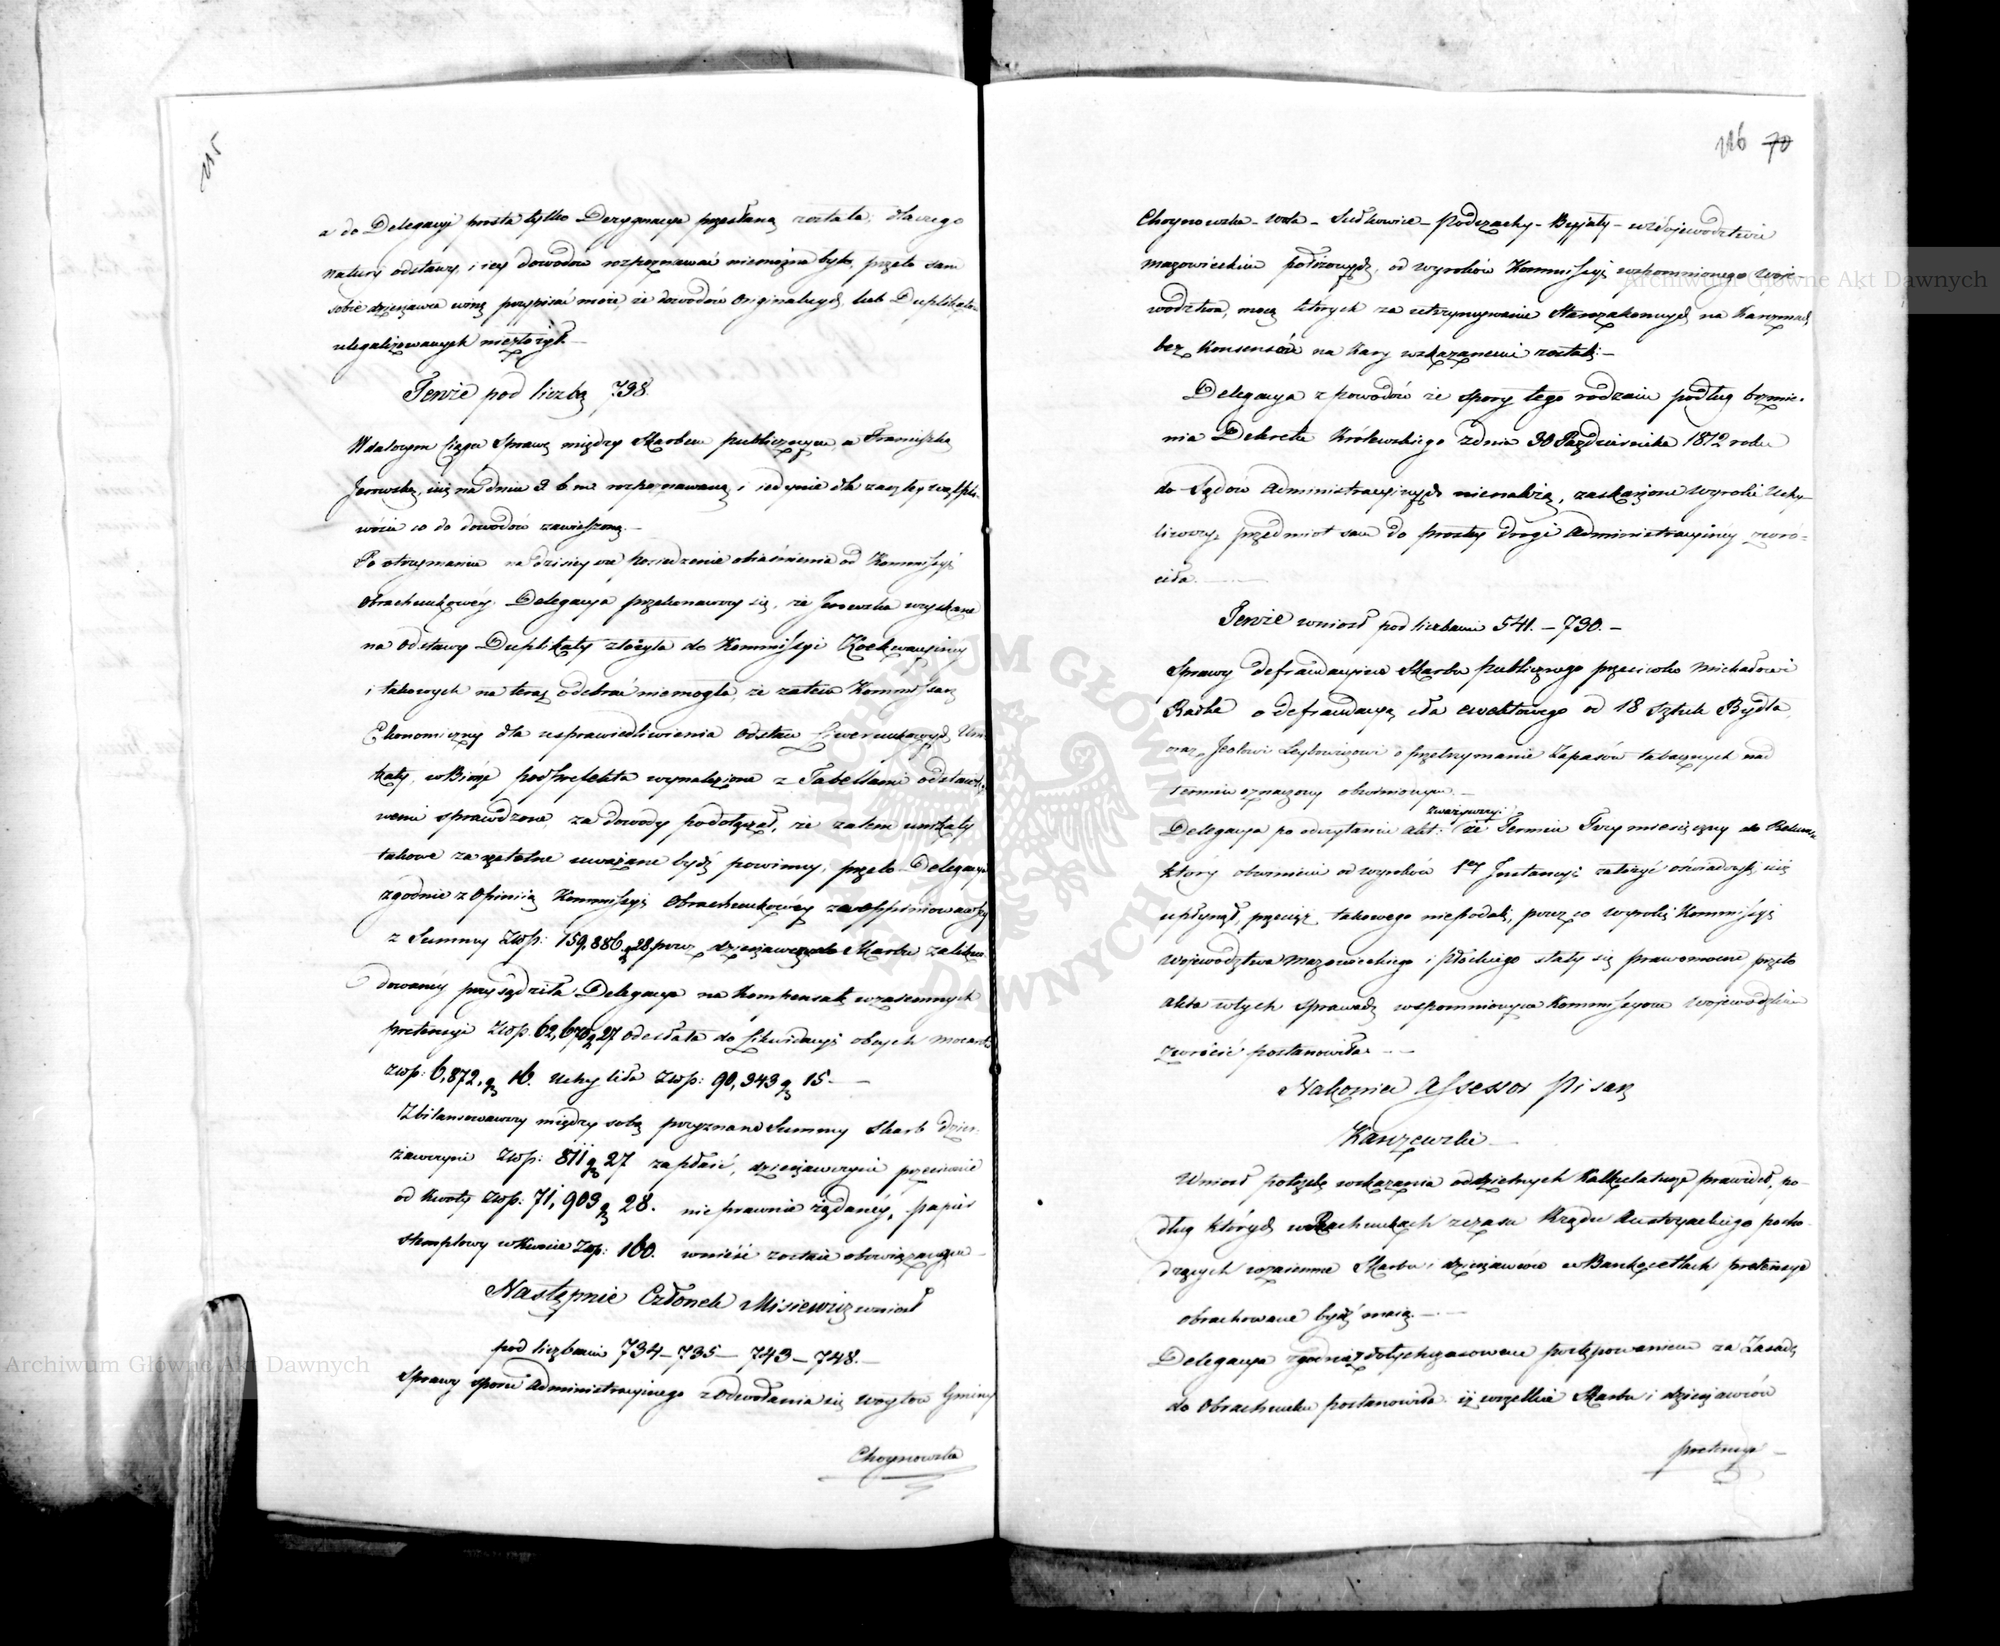 115
a do Delegacyi prosta tylko Dezygnacya przesłaną została; dlaczego
natury odstawy, i iey dowodów rozpoznawać niemożna było, przeto sam
sobie dzierżawca winę przypisać może, że dowodów Originalnych lub Duplikatów
ulegalizowanych niezłożył.—
Tenże pod liczbą 798.
W dalszym ciągu Sprawę między Skarbem publicznym, a Franciszką
Jerowską, iuż na dniu 2 b. m. rozpoznawaną, i iedynie dla
co do dowodów zawieszoną.—
Po otrzymaniu na dzisieysze posiedzenie obiaśnienia od Kommissyi
Obrachunkowéy, Delegacya przekonawszy się, że Jerowska uzyskane
na odstawy Duplikaty złożyła do Kommissyi
i takowych na teraz odebrać niemogła, że zatem Kommissarz
Ekonomiczny dla usprawiedliwienia odstaw Liwerunkowych,
w Biórze podprefekta wynalezione z Tabellami
sprawdzone, za dowody podołączał, że zatem
takowe za rzetelne uważane bydź powinny, przeto Delegacya
zgodnie z Opiniią Kommissyi Obrachunkowéy zaoppiniowawszy
z Summy Złłp: 159,886 g 28. przez dzierżawczynią do Skarbu zalikwi-
dowanéy przysądziła Delegacya na kompensatę wzaiemnych
pretensyi Złłp. 62,670 g 27 odesłała do Likwidacyi obcych mocarstw
Złłp: 6,872, g 16. uchyliła Złłp: 90,343 g 15.—
Zbilansowawszy między sobą przyznane Summy Skarb dzier-
żawczyni Złłp: 811 g 27 zapłacić, dzierżawczyni przeciwnie
od kwoty Złłp: 71,903 g 28. nieprawnie żądanéy, papier
stemplowy w kwocie Złp: 160. wnieść zostaie obowiązaną.—
Następnie Członek Misiewicz wniósł
pod liczbami 734—735—743—748.—
Sprawy sporu Administracyinego z Odwołania się Woytów Gminy
Choynowska
116 70
Choynowska-wola-Sułkowice-Podczachy-Bujały-w Woiewództwie
Mazowieckim położonych, od wyroków Kommissyi wspomnionego Woie-
wodztwa, mocą których za utrzymywanie Starozakonnych na Karczmach
bez Konsensów na kary wskazanemi zostali.—
Delegacya z powodów że spory tego rodzaiu podług brzmie-
nia Dekretu Królewskiego z dnia 30 Października 1812 roku
do Sądów Administracyinych nienależą, zaskarżone wyroki uchy-
liwszy, przedmiot sam do prostey drogi Administracyiney zwró-
ciła.—
Tenże wniósł pod liczbami 541.—790.—
Sprawy defraudacyine Skarbu publicznego przeciwko Michałowi
o defraudacyą cła ewektowego od 18 sztuk Bydła,
oraz Leybowiczowi o przetrzymanie zapasów tabacznych nad
termin oznaczony obwinionym.—
Delegacya po odczytaniu akt: zważywszy: że Termin Trzymiesięczny do Rekursu
który obwinieni od wyroków 1ey Instancyi założyć oświadczyli, iuż
upłynął, przeciąż takowego niepodali, przez co wyroki Kommissyi
Woiewództwa Mazowieckiego i Płockiego stały się prawomocne, przeto
akta w tych sprawach wspomnionym Kommissyom Woiewódzkim
zwrócić postanowiła.—
Nakoniec Assessor Pisarz
Karczewski—
Wniósł potrzebę wskazania oddzielnych Kalkulaturze prawideł, po-
dług których w Rachunkach z czasu Rządu Austryackiego pocho-
dzących wzaiemne Skarbu i dzierżawców w Bankocetlach pretensye
obrachowane bydź maią.—
Delegacya zgodnie z dotychczasowem postępowaniem za Zasadę
do Obrachunku postanowiła iż wszelkie Skarbu i dzierżawców
pretensye—